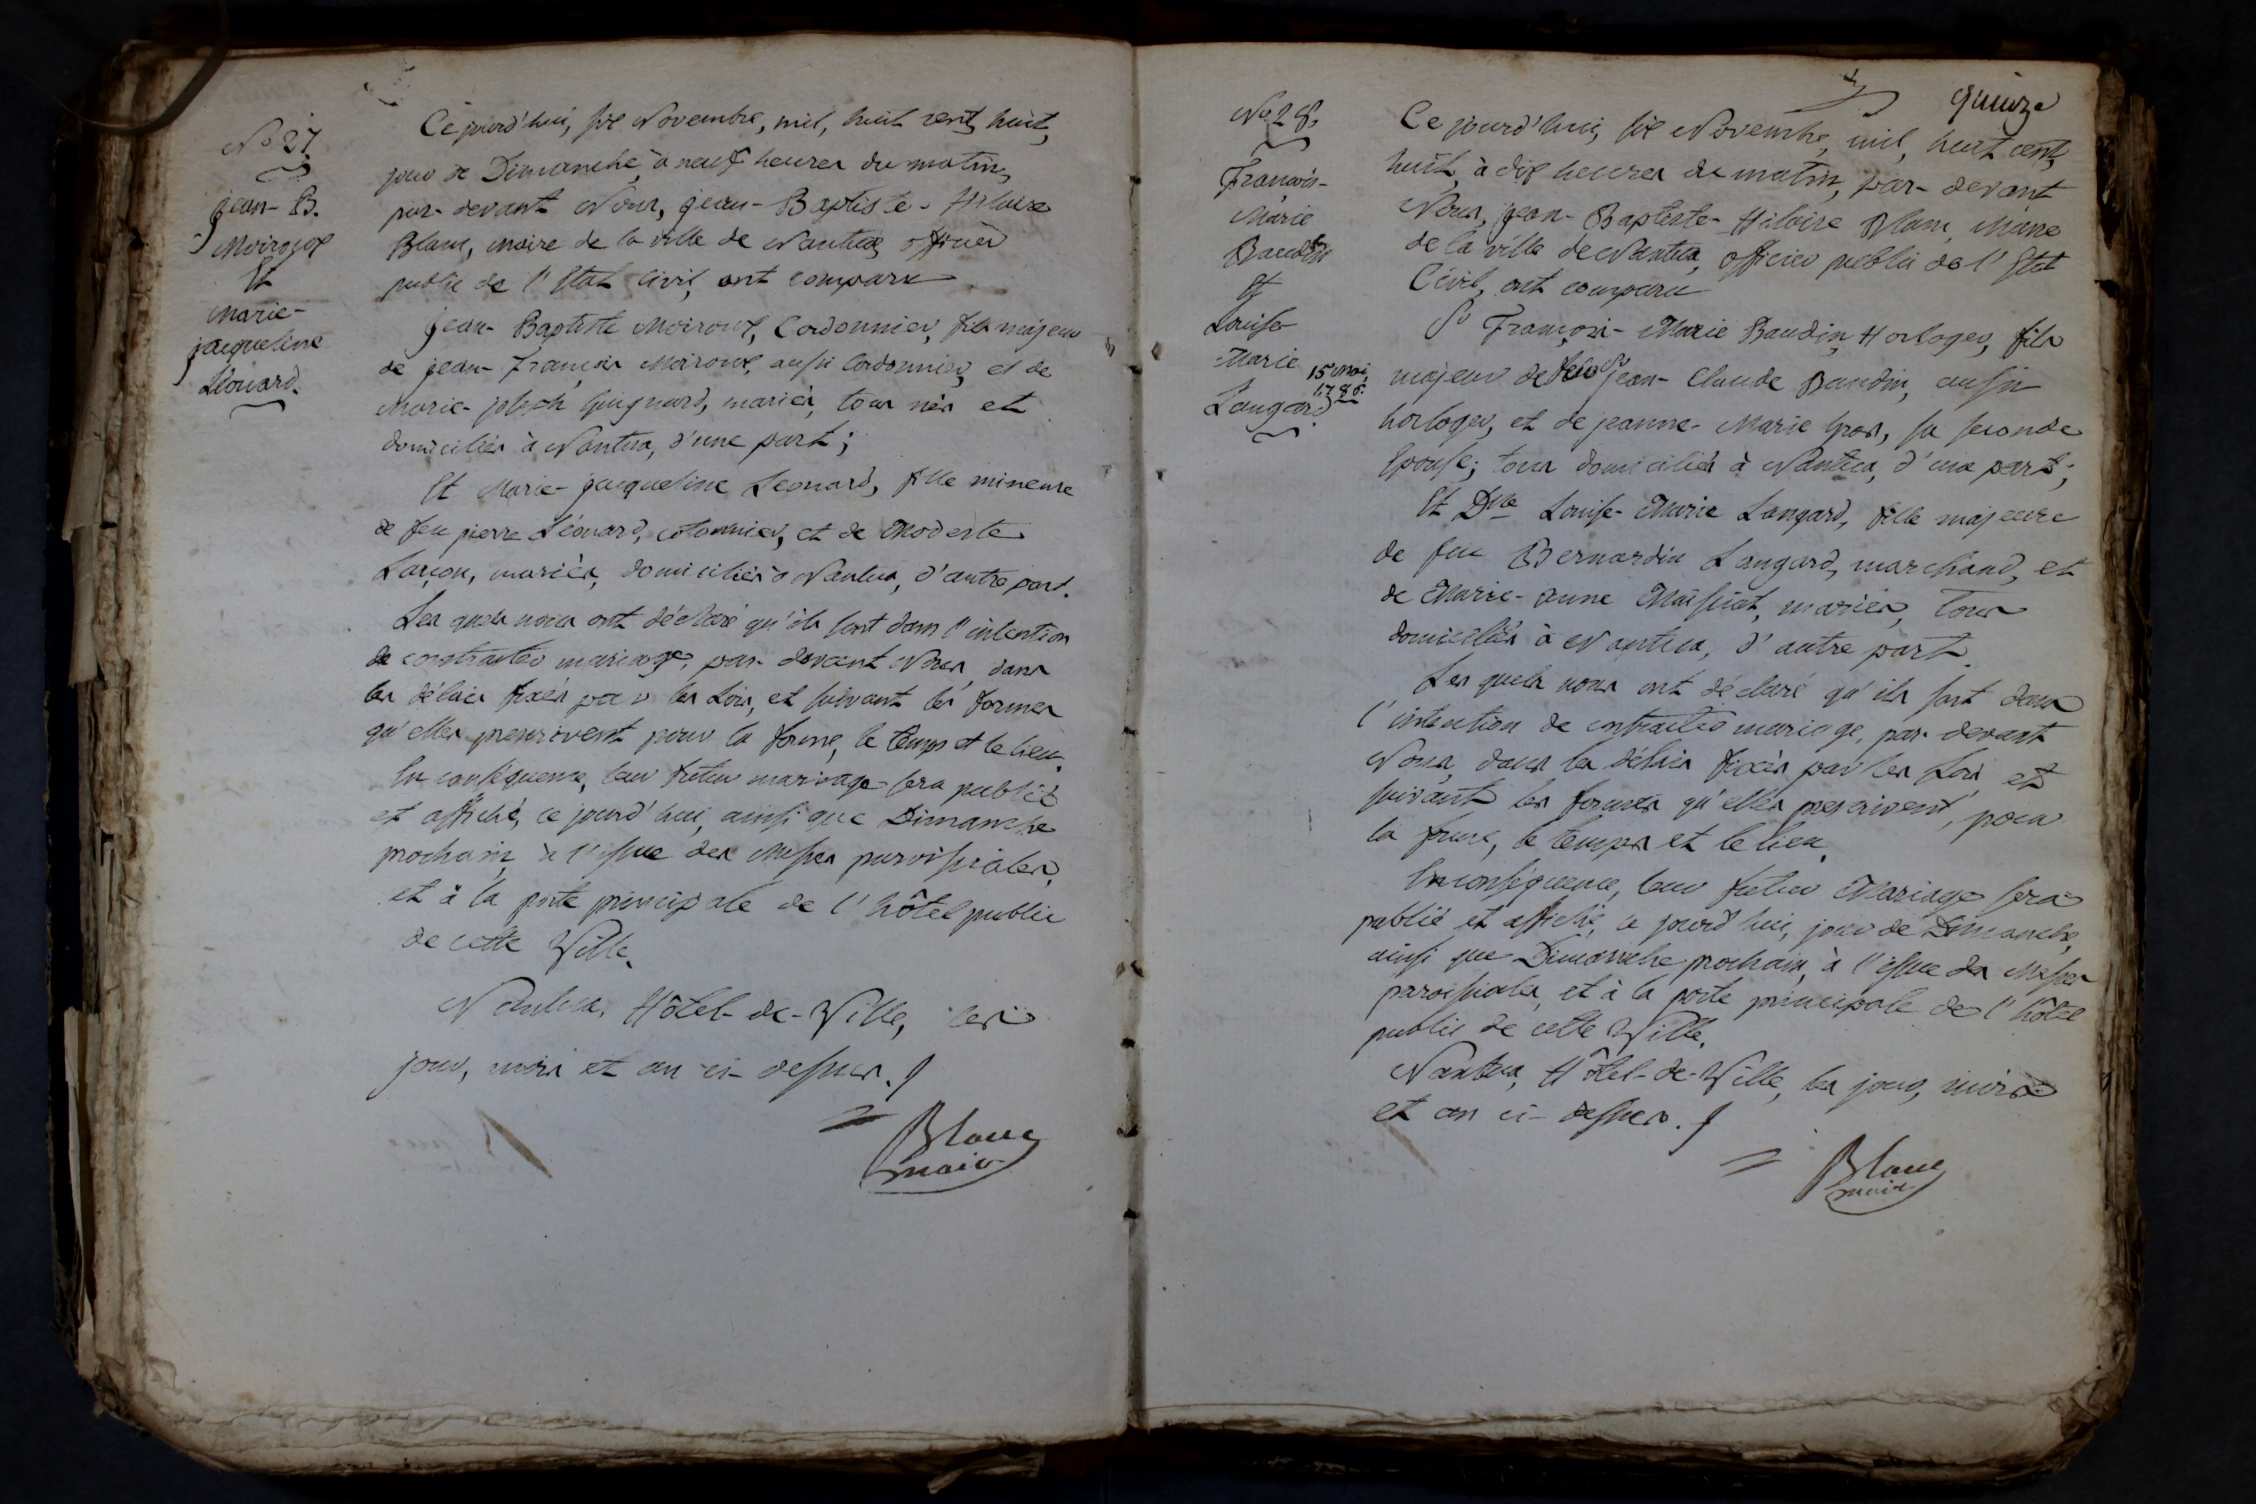 No 27
jean-B.
Moiroux
Et
Marie-
jacqueline
Léonard.
Ce jourd'hui, six Novembre, mil, huit cent, huit,
jour de Dimanche, à neuf heures du matin,
par-devant Nous, jean-Baptiste-Hilaire
Blanc, maire de la ville de Nantua, officier
public de l'Etat Civil, ont comparu
jean-Baptiste Moiroux, Cordonnier, fils majeur
de jean-François Moiroux, aussi Cordonnier, et de
Marie-joseph Guignard, mariés, tous nés et
domiciliés à Nantua, d'une part;
Et Marie-jacqueline Léonard, fille mineure
de feu pierre Léonard, cotonnier, et de Modeste
Lançon, mariés, domiciliés à Nantua, d'autre part.
Les quels nous ont déclaré qu'ils sont dans l'intention
de contracter mariage, par-devant Nous, dans
les délais fixés par les Lois, et suivant les formes
qu'elles prescrivent pour la forme, le temps et le lieu.
En conséquence, leur futur mariage sera publié
et affiché, ce jourd'hui, ainsi que Dimanche
prochain, à l'issue des Messes paroissiales,
et à la porte principale de l'hôtel public
de cette Ville.
Nantua, Hôtel-de-Ville, les
jour, mois et an ci-dessus.
Blanc
maire
quinze
No 28.
François-
Marie
Baudin
Et
Louise-
Marie
15 mai
1786.
Langard.
Ce jourd'hui, six Novembre, mil, huit cent,
huit, à dix heures du matin, par-devant
Nous, jean-Baptiste-Hilaire Blanc, Maire
de la ville de Nantua, officier public de l'Etat
Civil, ont comparu
Sr François-Marie Baudin, Horloger, fils
majeur de feu Sr jean-Claude Baudin, aussi
horloger, et de jeanne-Marie Gros, sa seconde
Epouse; tous domiciliés à Nantua, d'une part;
Et Dlle Louise-Marie Langard, fille majeure
de feu Bernardin Langard, marchand, et
de Marie-anne Maissiat, mariés, tous
domiciliés à Nantua, d'autre part.
Les quels nous ont déclaré qu'ils sont dans
l'intention de contracter mariage, par-devant
Nous, dans les délais fixés par les Lois, et
suivant les formes qu'elles prescrivent, pour
la forme, le temps et le lieu.
En conséquence, leur futur Mariage sera
publié et affiché, ce jourd'hui, jour de Dimanche,
ainsi que Dimanche prochain, à l'issue des Messes
paroissiales, et à la porte principale de l'hôtel
public de cette Ville.
Nantua, Hôtel-de-Ville, les jour, mois
et an ci-dessus.
Blanc
maire